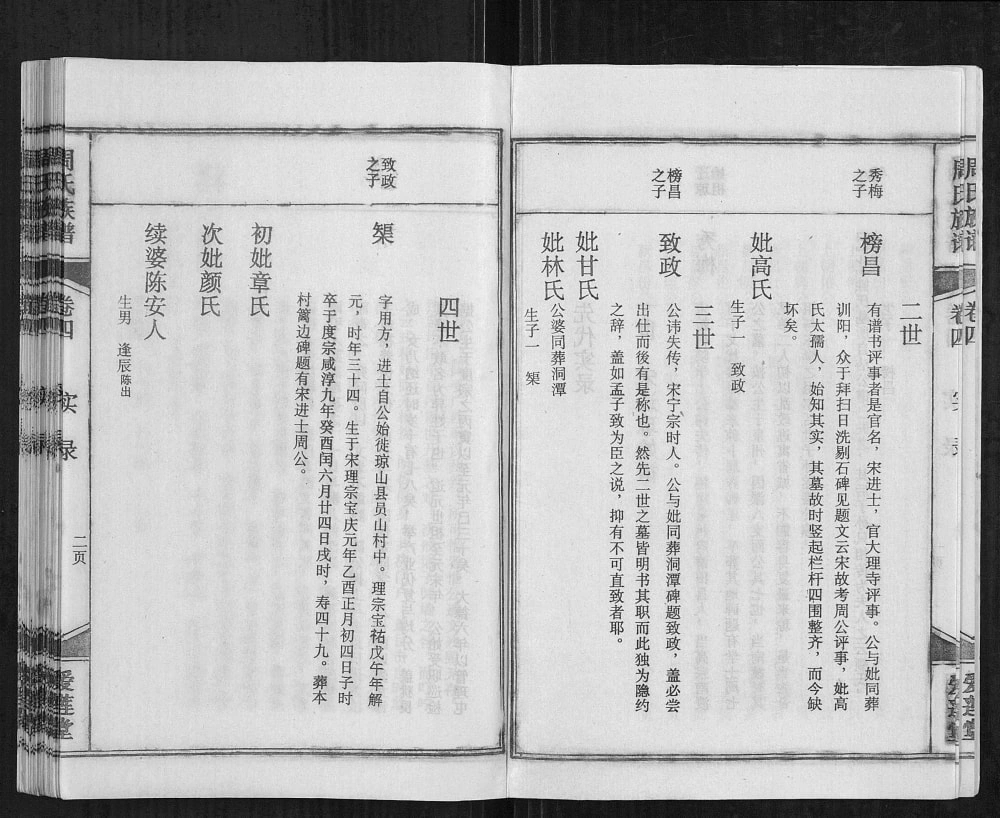 周氏族谱
卷四
实录
爱莲堂
二世
秀梅
之子
榜昌
有谱书评事者是官名，宋进士，官大理寺评事。公与妣同葬
训阳，众于拜扫日洗剔石碑见题文云宋故考周公评事，妣高
氏太孺人，始知其实，其墓故时竖起栏杆四围整齐，而今缺
坏矣。
妣高氏
生子一 致政
三世
榜昌
之子
致政
公讳失传，宋宁宗时人。公与妣同葬洞潭碑题致政，盖必尝
出仕而後有是称也。然先二世之墓皆明书其职而此独为隐约
之辞，盖如孟子致为臣之说，抑有不可直致者耶。
妣甘氏
妣林氏
公婆同葬洞潭
生子一 榘
四世
致政
之子
榘
字用方，进士自公始徙琼山县员山村中。理宗宝祐戊午年解
元，时年三十四。生于宋理宗宝庆元年乙酉正月初四日子时
卒于度宗咸淳九年癸酉闰六月廿四日戌时，寿四十九。葬本
村篱边碑题有宋进士周公。
初妣章氏
次妣颜氏
续婆陈安人
生男 逢辰陈出
周氏族谱
卷四
实录
二页
爱莲堂